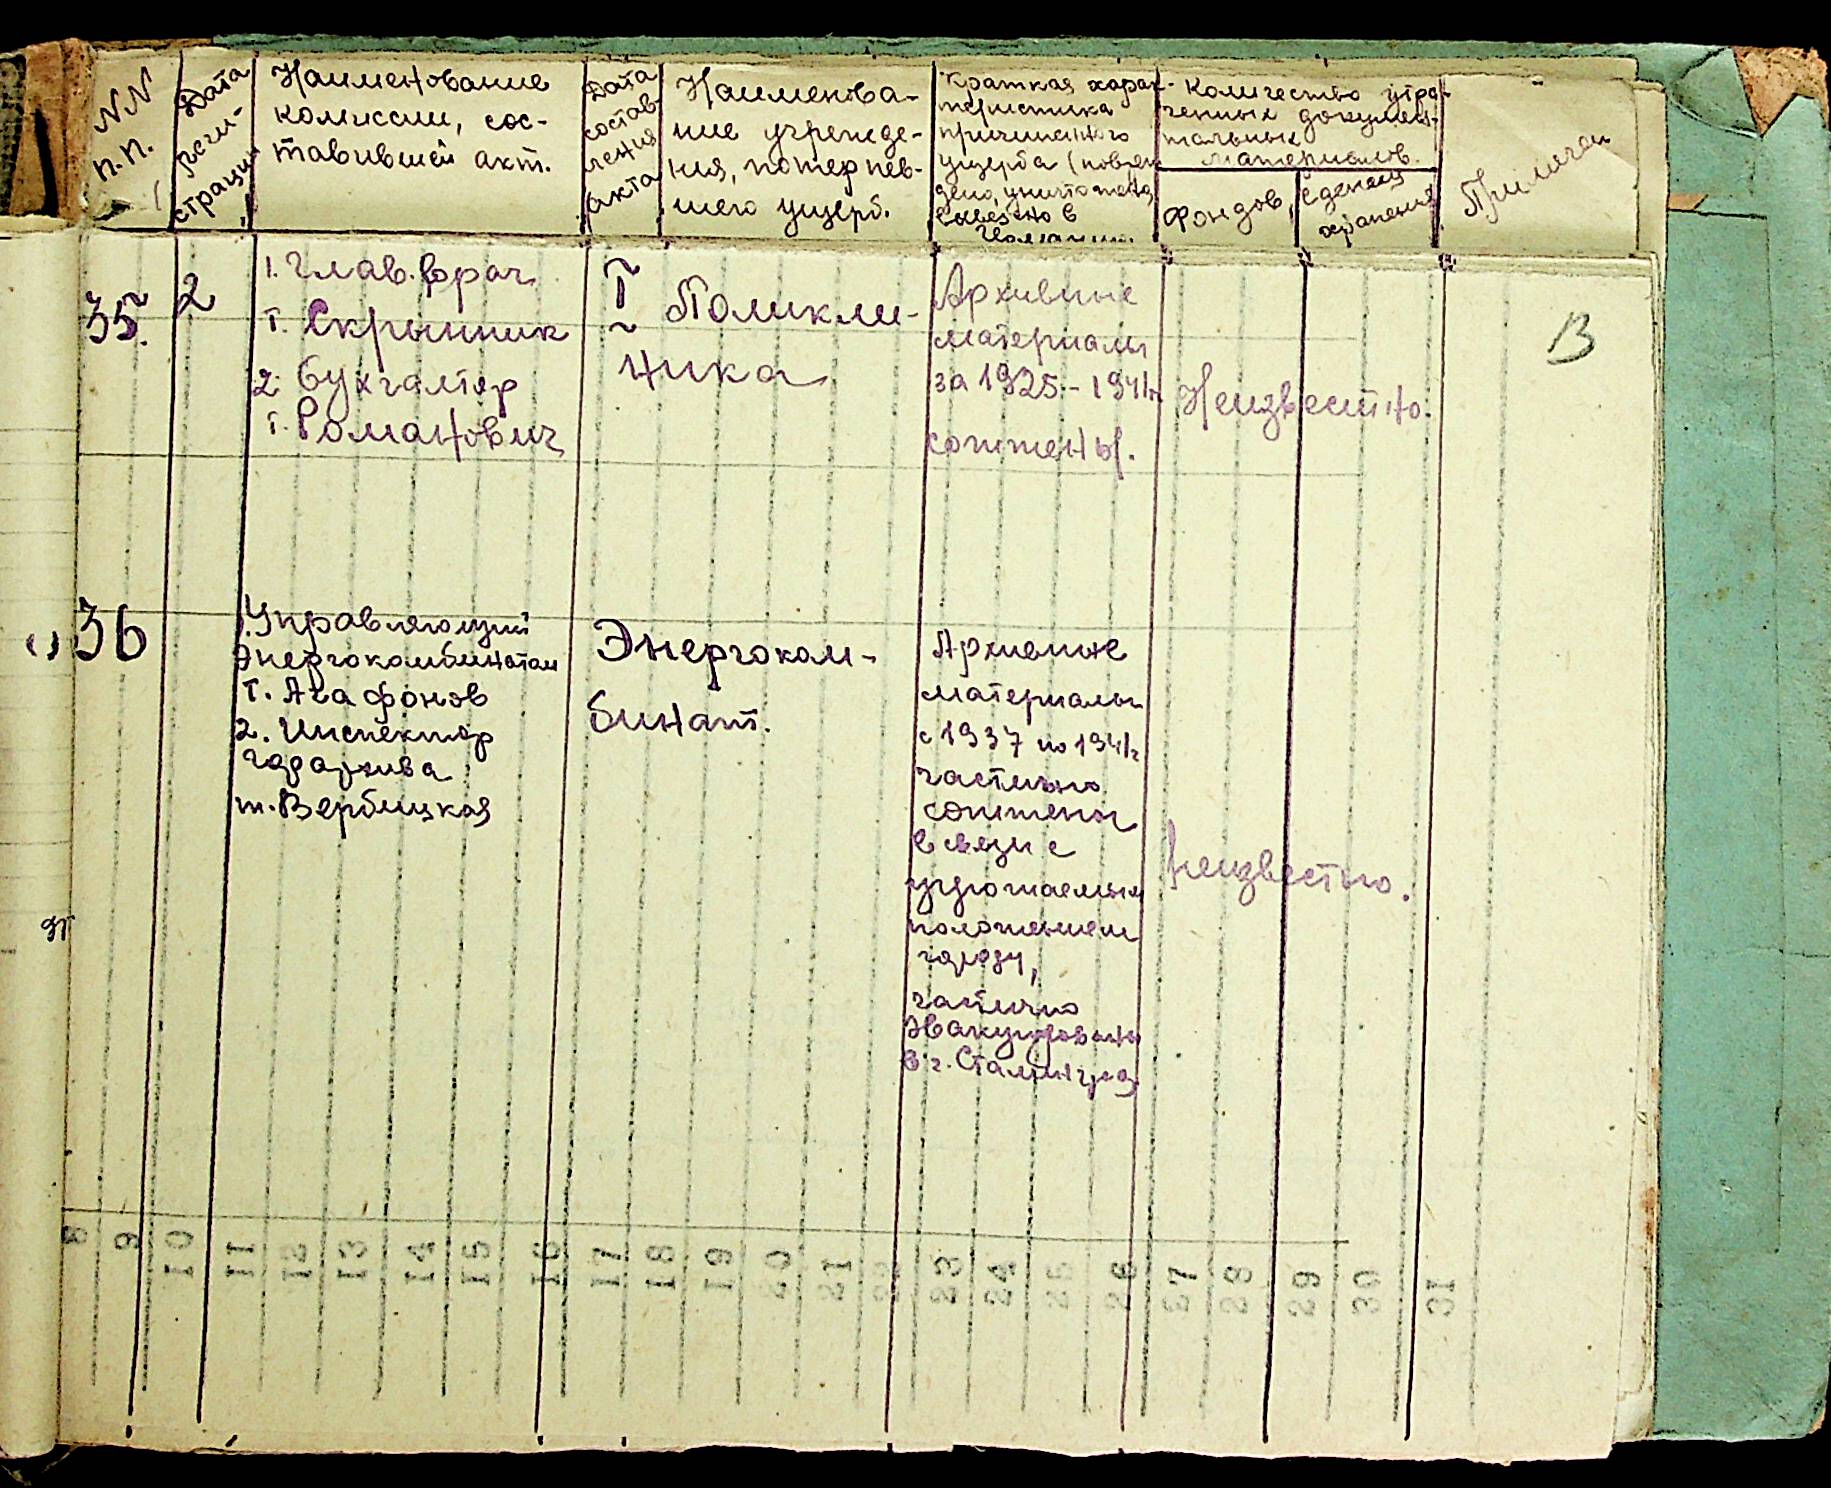 NN
п.п.
Дата
реги-
страции
Наименование
комиссии, сос-
тавившей акт.
Дата
состав-
ления
акта
Наименова-
ние учрежде-
ния, потерпев-
шего ущерб.
Краткая харак-
теристика
причиненного
ущерба (повреж
дено, уничтожено,
вывезено в
Германию.
Количество утра-
ченных докумен-
тальных
материалов.
фондов,
единиц
хранения
Примечан
35.
2
1. Глав. врач
т. Скрынник
2. бухгалтер
т. Романович
Поликли-
ника
Архивные
материалы
за 1925 - 1941г
сожжены.
Неизвестно.
13
36
1. Управляющий
Энергокомбинатом
т. Агафонов
2. Инспектор
горархива
т. Вербицкая
Энергоком-
бинат.
Архивные
материалы
с 1937 по 1941г
частично
сожжены
в связи с
угрожаемым
положением
городу,
частично
эвакуировано
в г. Сталинград
Неизвестно.
8
9
10
11
12
13
14
15
16
17
18
19
20
21
22
23
24
25
26
27
28
29
30
31